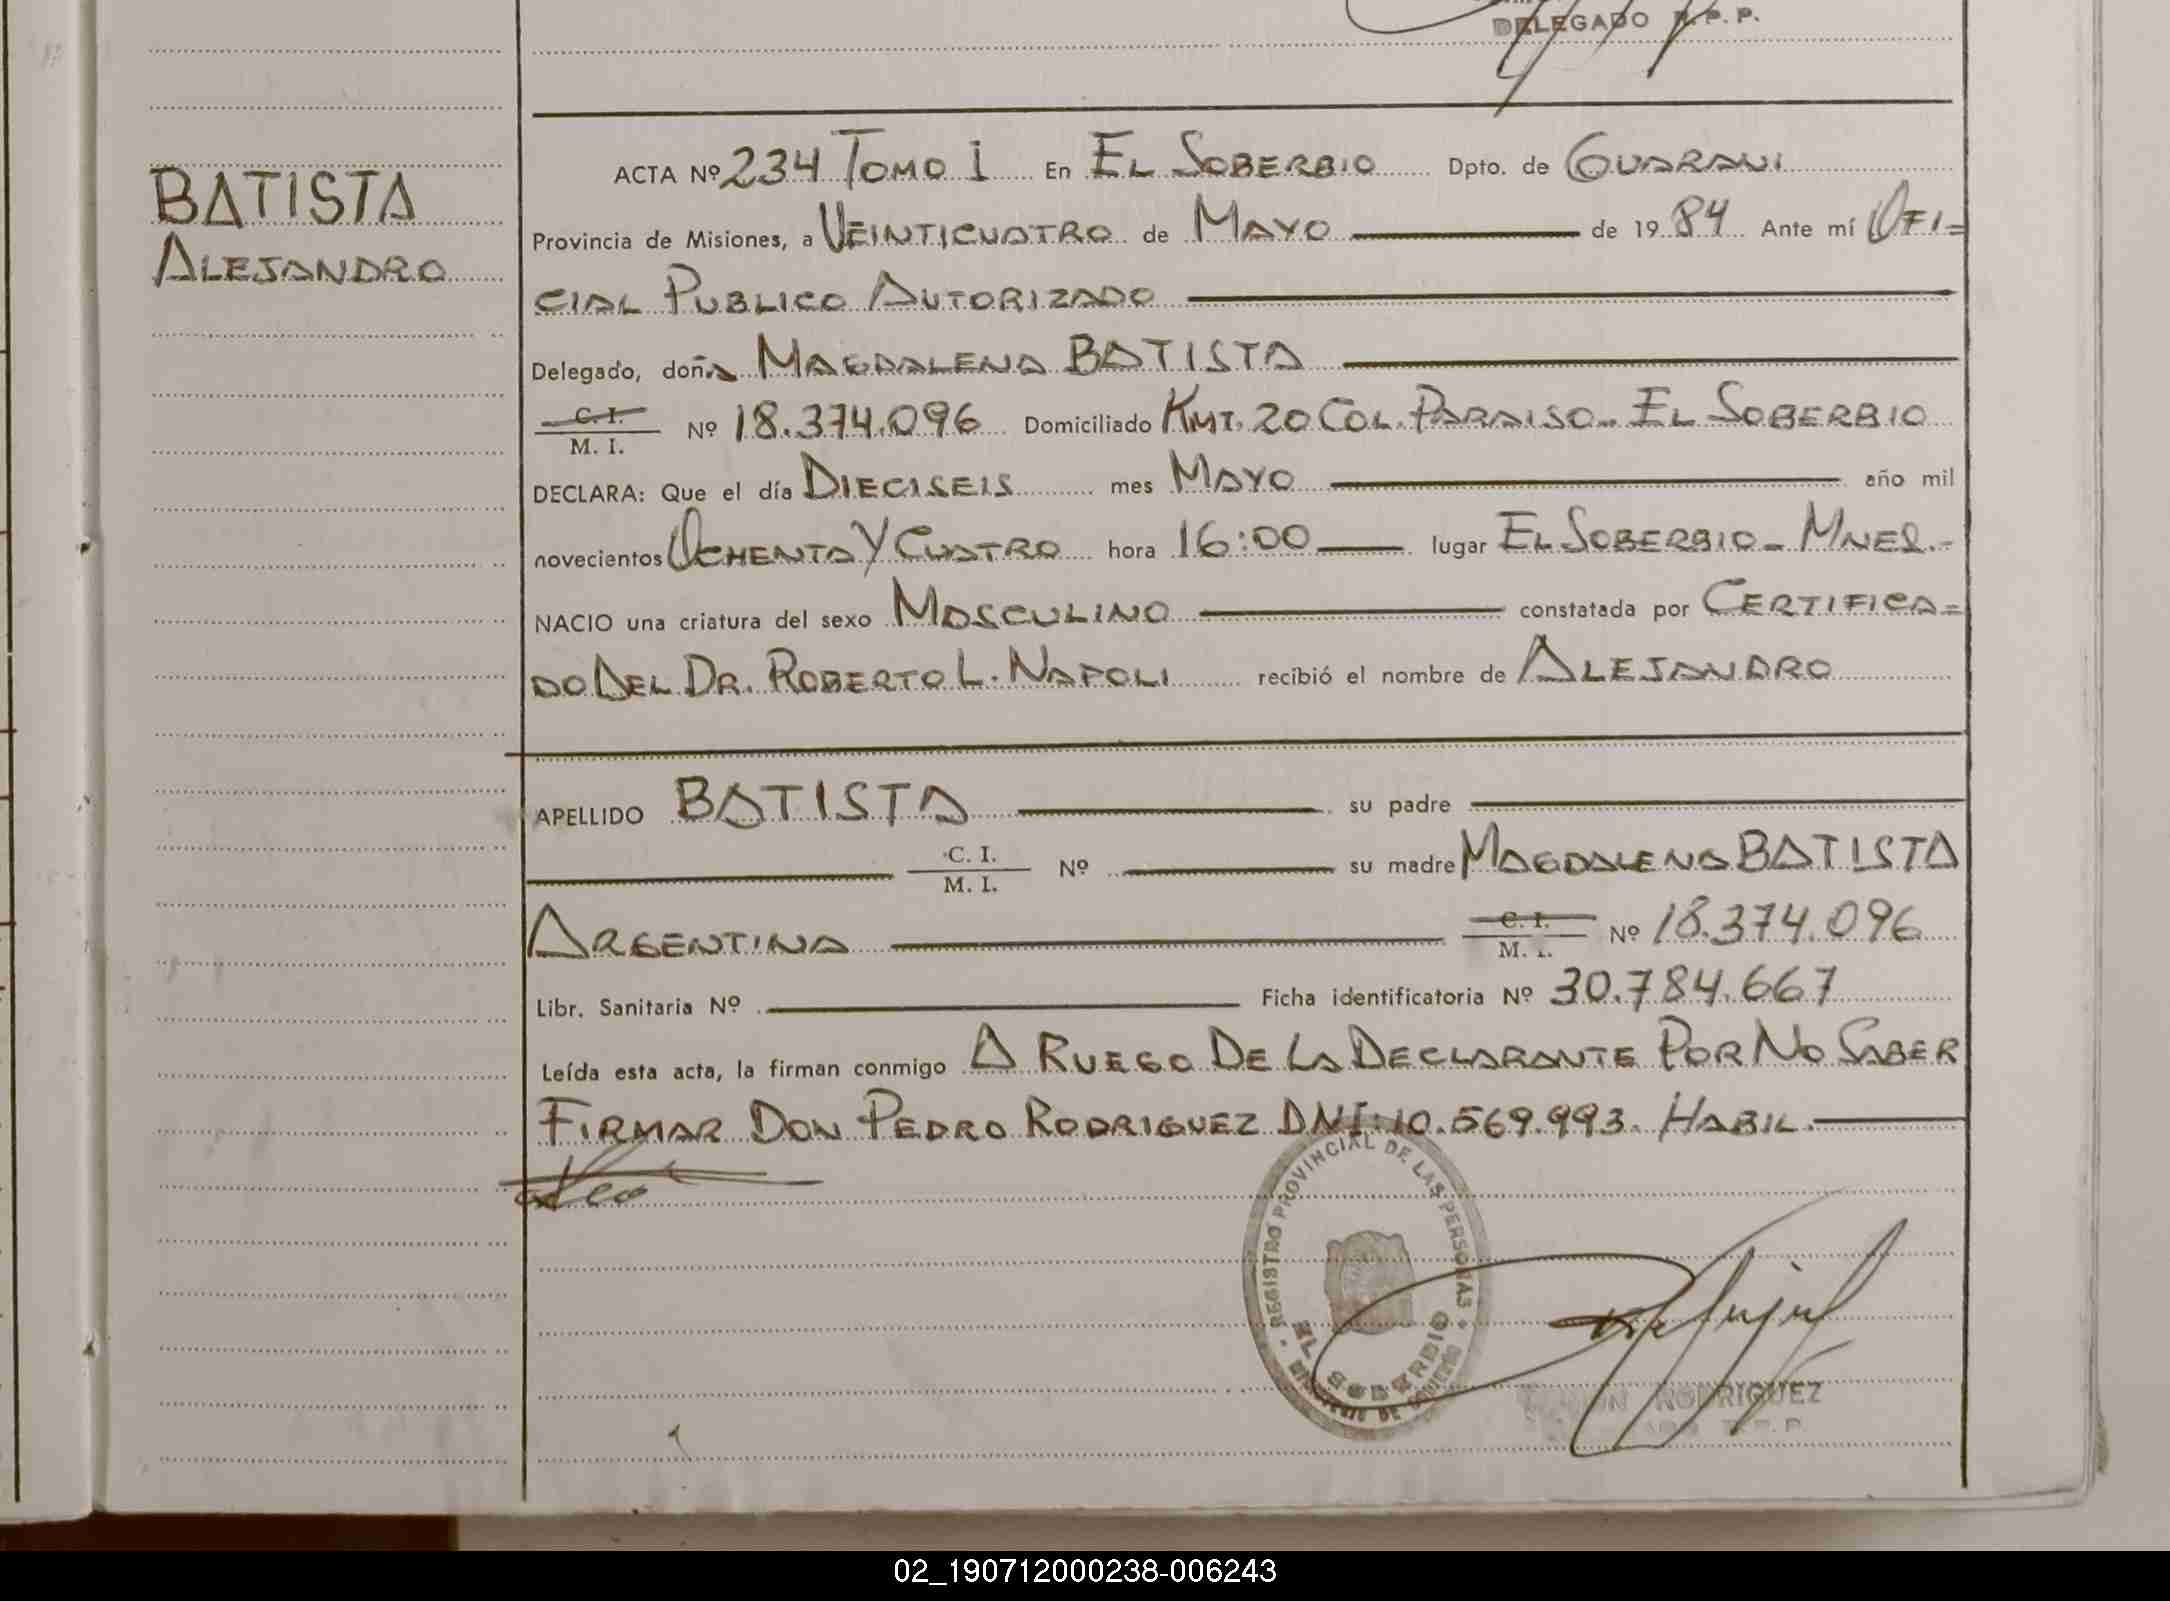 DELEGADO R.P.P.
BATISTA
ALEJANDRO
ACTA Nº 234 TOMO I En EL SOBERBIO Dpto. de GUARANI
Provincia de Misiones, a VEINTICUATRO de MAYO de 1984 Ante mí OFI=
CIAL PUBLICO AUTORIZADO
Delegado, doña MAGDALENA BATISTA
C. I.
M. I. Nº 18.374.096 Domiciliado KMT. 20 COL. PARAISO - EL SOBERBIO
DECLARA: Que el día DIECISEIS mes MAYO año mil
novecientos OCHENTA Y CUATRO hora 16:00 lugar EL SOBERBIO - MNES.-
NACIO una criatura del sexo MASCULINO constatada por CERTIFICA=
DO DEL DR. ROBERTO L. NAPOLI recibió el nombre de ALEJANDRO
APELLIDO BATISTA su padre
C. I.
M. I. Nº su madre MAGDALENA BATISTA
ARGENTINA C. I.
M. I. Nº 18.374.096
Libr. Sanitaria Nº Ficha identificatoria Nº 30.784.667
Leída esta acta, la firman conmigo A RUEGO DE LA DECLARANTE POR NO SABER
FIRMAR DON PEDRO RODRIGUEZ DNI: 10.569.993. HABIL.
REGISTRO PROVINCIAL DE LAS PERSONAS
EL SOBERBIO
MINISTERIO DE GOBIERNO
RODRIGUEZ
02_190712000238-006243